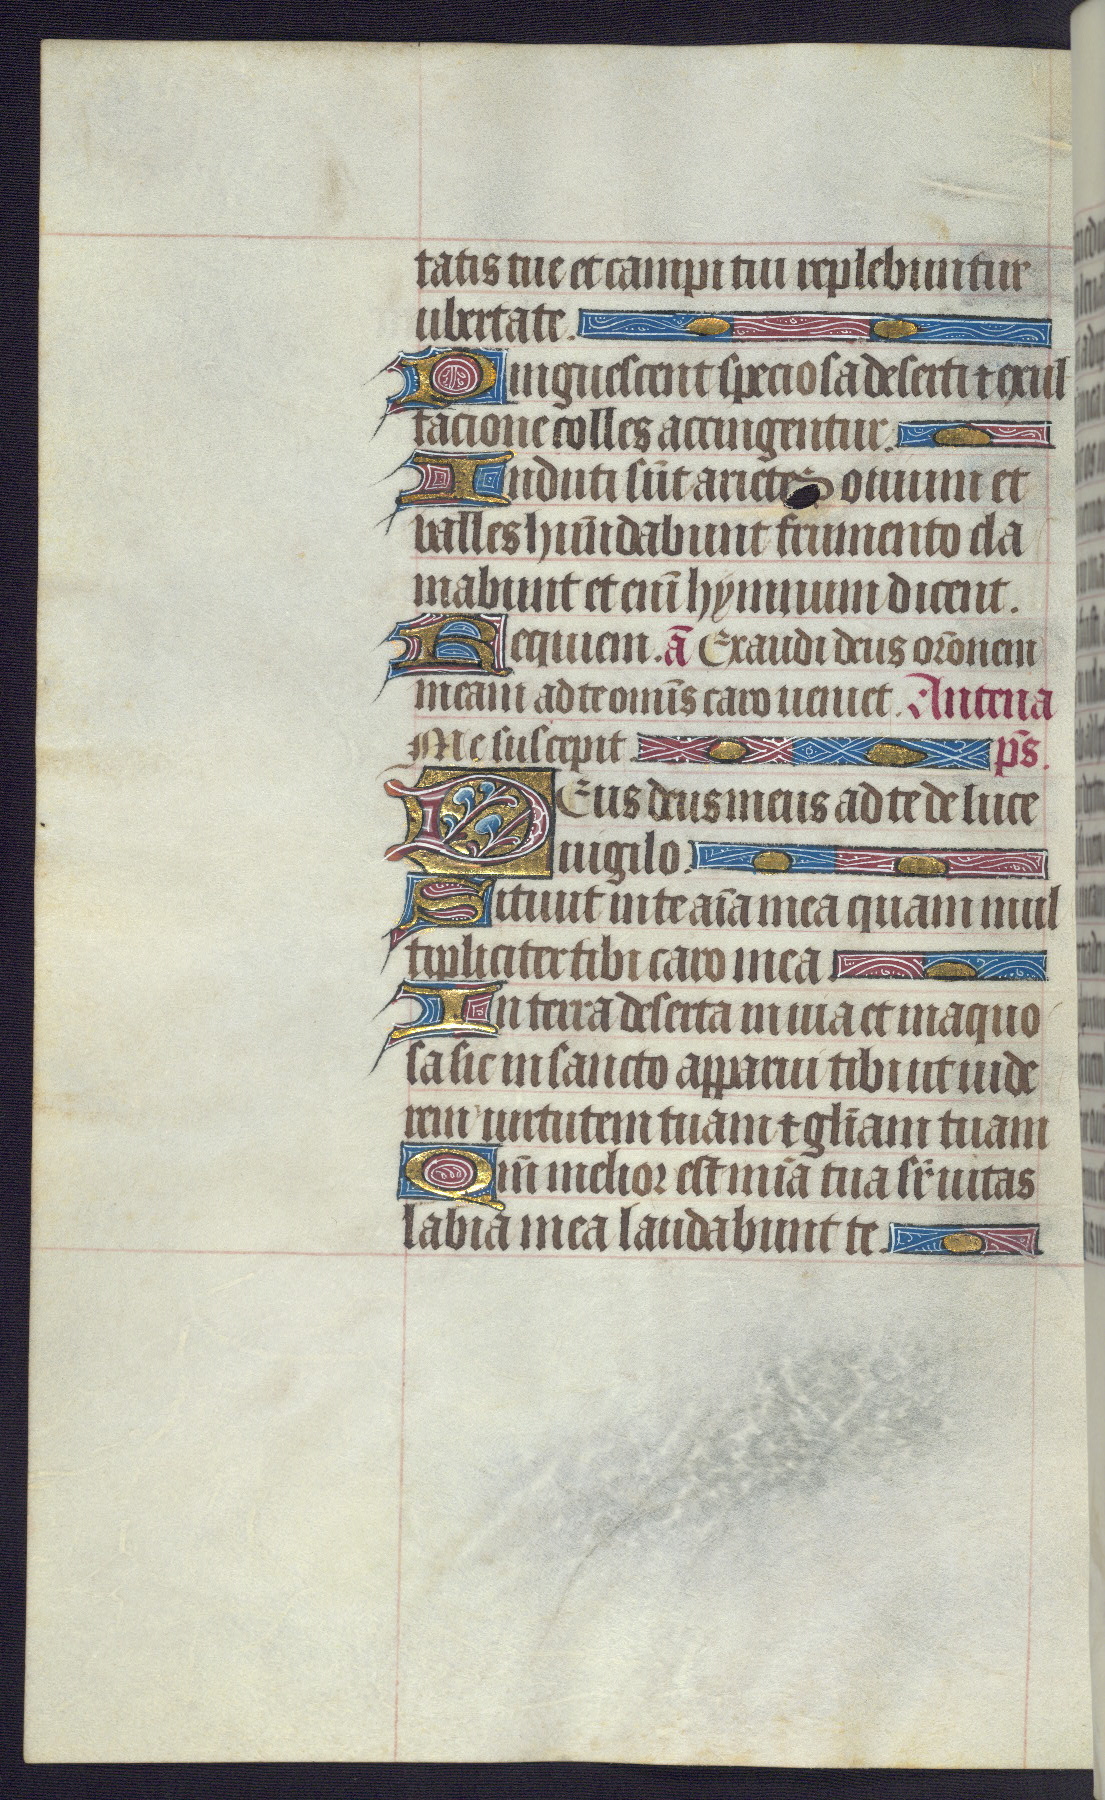 tatis tue et campi tui replebuntur
ubertate.
Pinguescent speciosa deserti ⁊ exul
tacione colles accingentur.
Induti sūt arietes ouium et
valles hūdabunt frumento cla
mabunt et enī hymnum dicent.
Requiem. ā Exaudi deus orōnem
meam ad te omīs caro ueniet. Antena
Me suscepit p̄s.
Deus deus meus ad te de luce
uigilo.
Sitiuit in te aīa mea quam mul
tipliciter tibi caro mea
In terra deserta inuia et inaquo
sa sic in sancto apparui tibi ut uide
rem uirtutem tuam ⁊ glīam tuam
Qm̄ melior est mīa tua sr̄ uitas
labia mea laudabunt te.